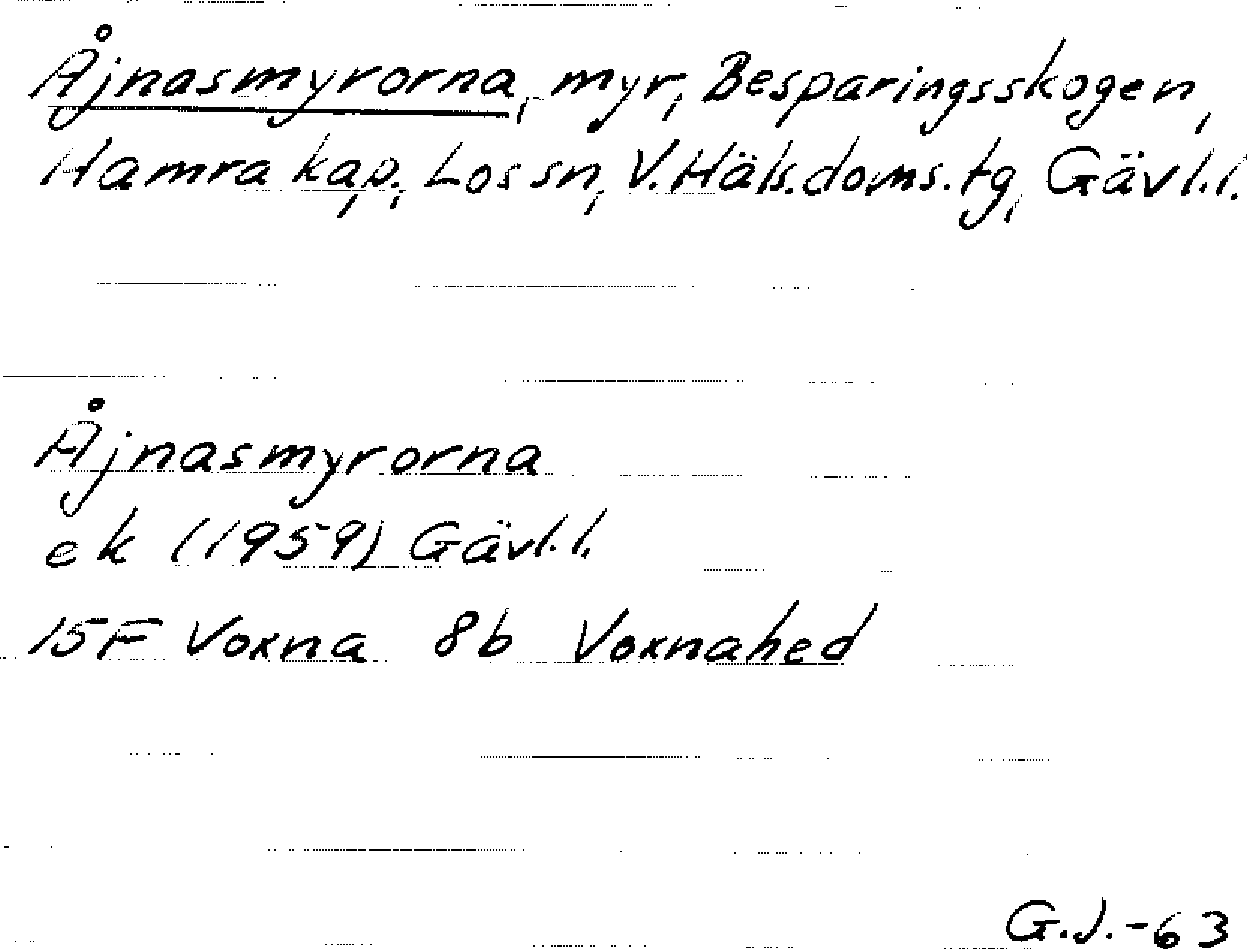 Åjnasmyrorna, myr, Besparingsskogen,
Hamra kap., Los sn, V.Häls.doms.tg, Gävl.l.
Åjnasmyrorna
ek (1959) Gävl.l.
15F Voxna 8b Voxnahed
G.J.-63